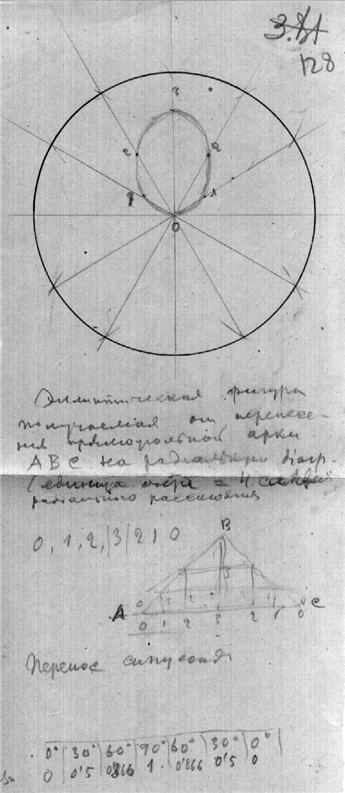 3.81
128
3
2 2
1 1
0
Эллиптическая фигура
получаемая от перенесе-
ния прямоугольной арки
ABC на радиальную диагр.
радиального рассеяния
0, 1, 2, |3| 2 | 0
B
A C
0 1 2 3 2 1 0
Перенос синусоиды
0° | 30° | 60° | 90° | 60° | 30° | 0°
0 0'5 0'866 1 0'866 0'5 0